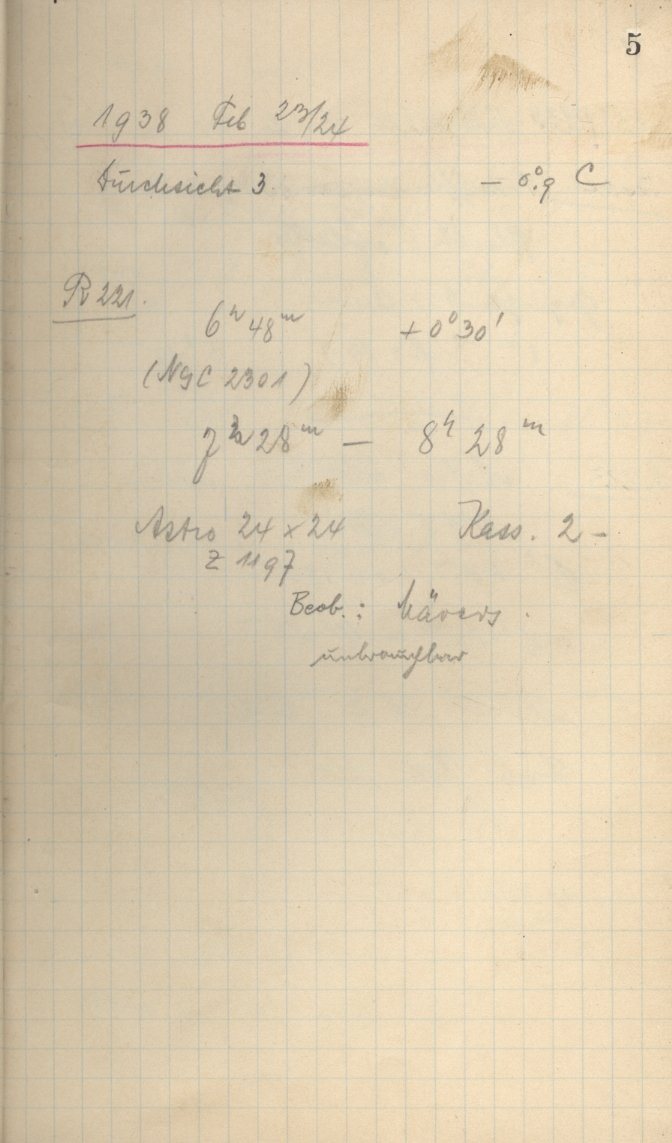 5
1938 Feb 23/24
Durchsicht 3 — 0°.9 C
R 221.
6h 48m + 0° 30'
(NGC 2301)
7h 28m — 8h 28m
Astro 24 x 24 Kass. 2 -
Z 1197
Beob. :
unbrauchbar